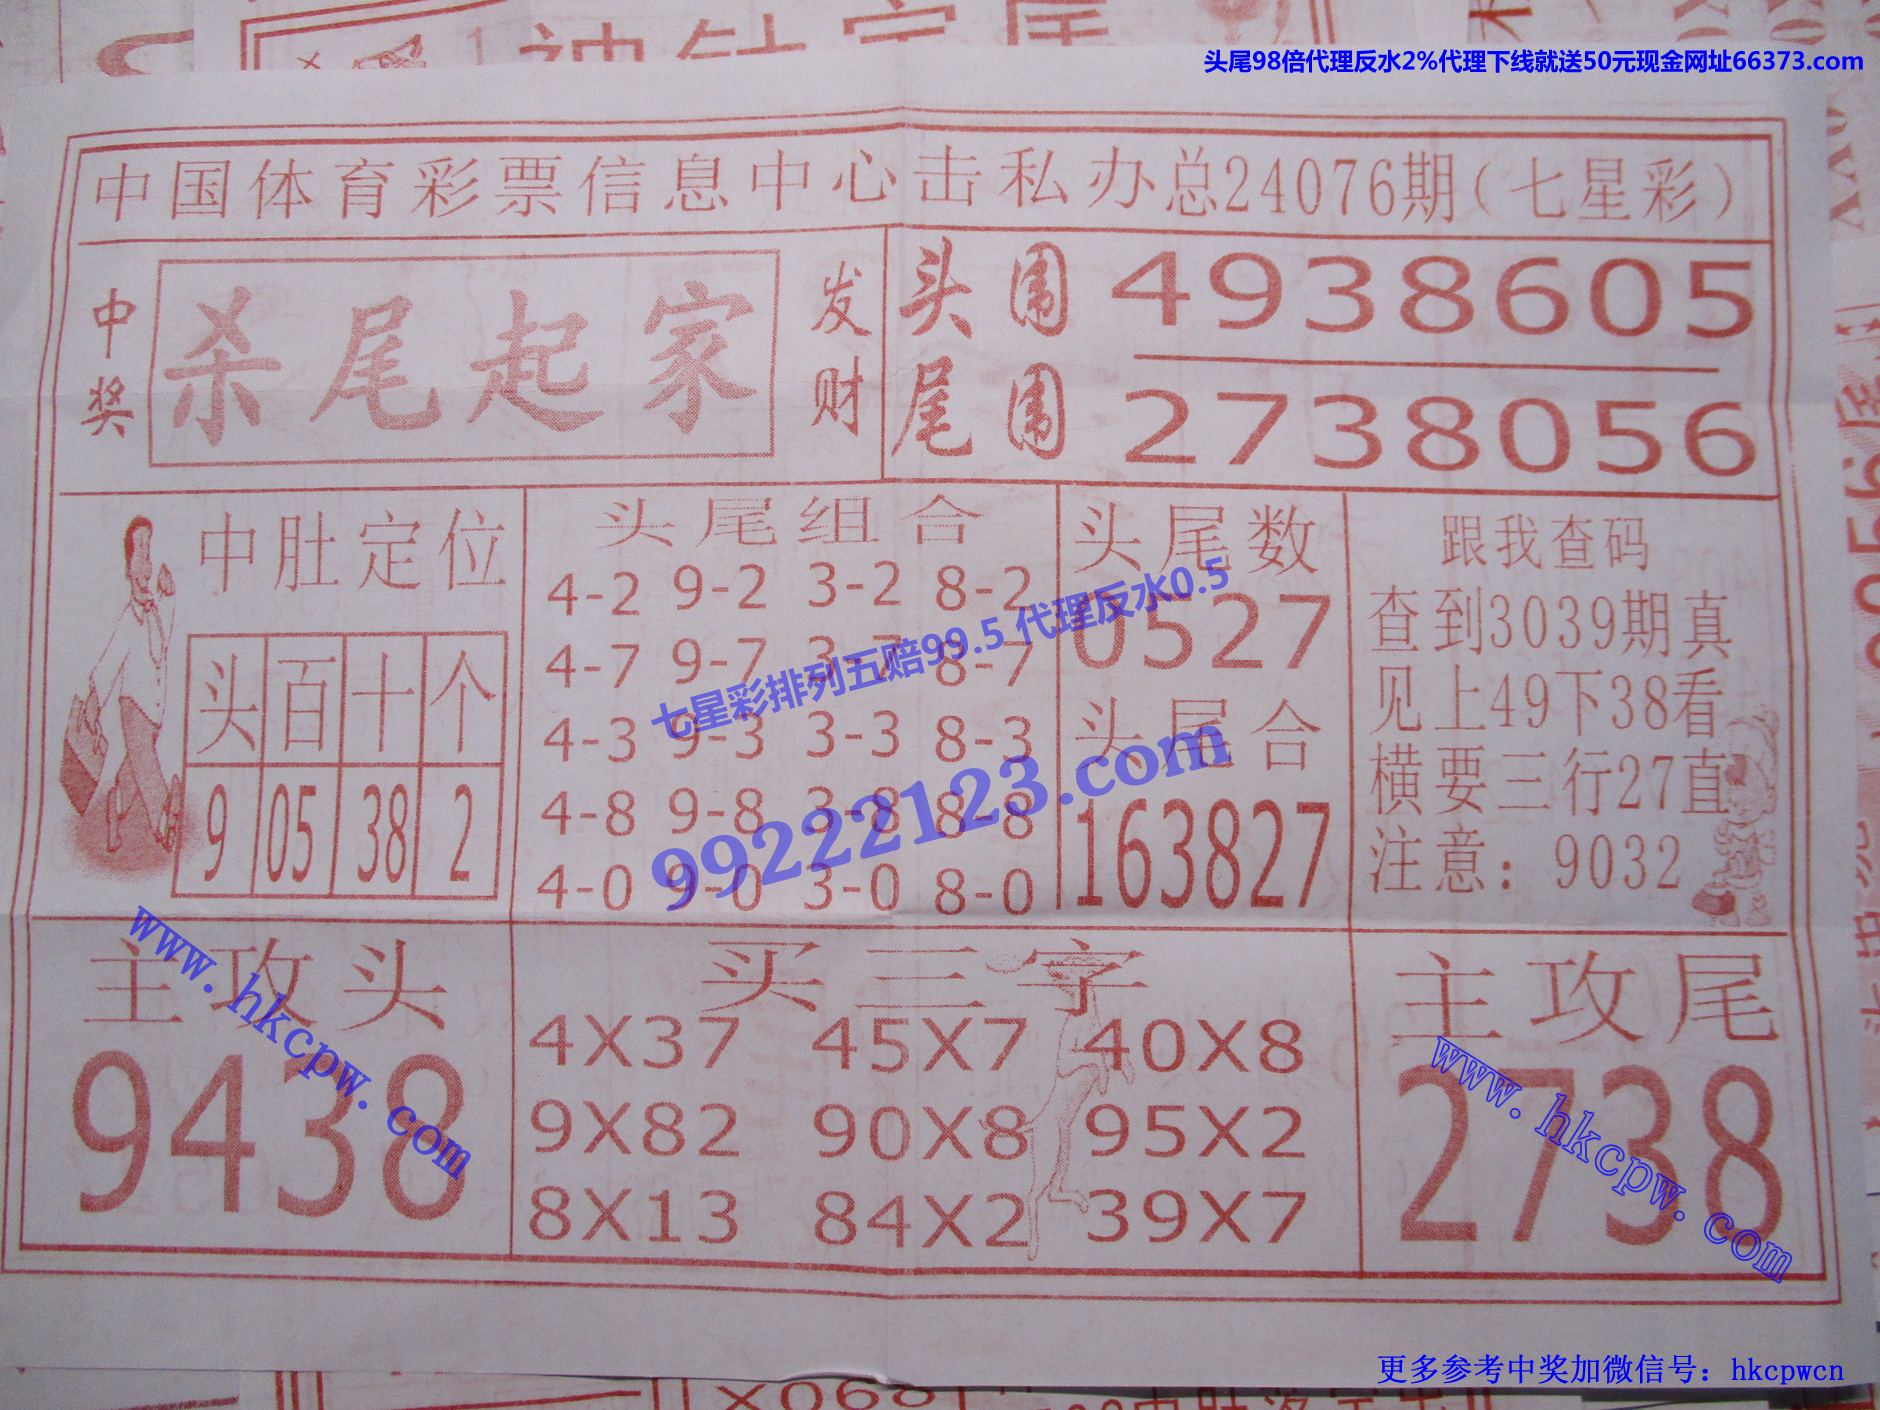 头尾98倍代理反水2%代理下线就送50元现金网址66373.com
中国体育彩票信息中心击私办总24076期(七星彩)
中奖
杀尾起家
发财
头围 4938605
尾围 2738056
中肚定位
头 百 十 个
9 05 38 2
头尾组合
4-2 9-2 3-2 8-2
4-7 9-7 3-7 8-7
4-3 9-3 3-3 8-3
4-8 9-8 3-8 8-8
4-0 9-0 3-0 8-0
头尾数
0527
头尾合
163827
跟我查码
查到3039期真
见上49下38看
横要三行27直
注意：9032
七星彩排列五赔99.5 代理反水0.5
99222123.com
主攻头
9438
www.hkcpw.com
买三字
4X37 45X7 40X8
9X82 90X8 95X2
8X13 84X2 39X7
主攻尾
2738
www.hkcpw.com
更多参考中奖加微信号：hkcpwcn